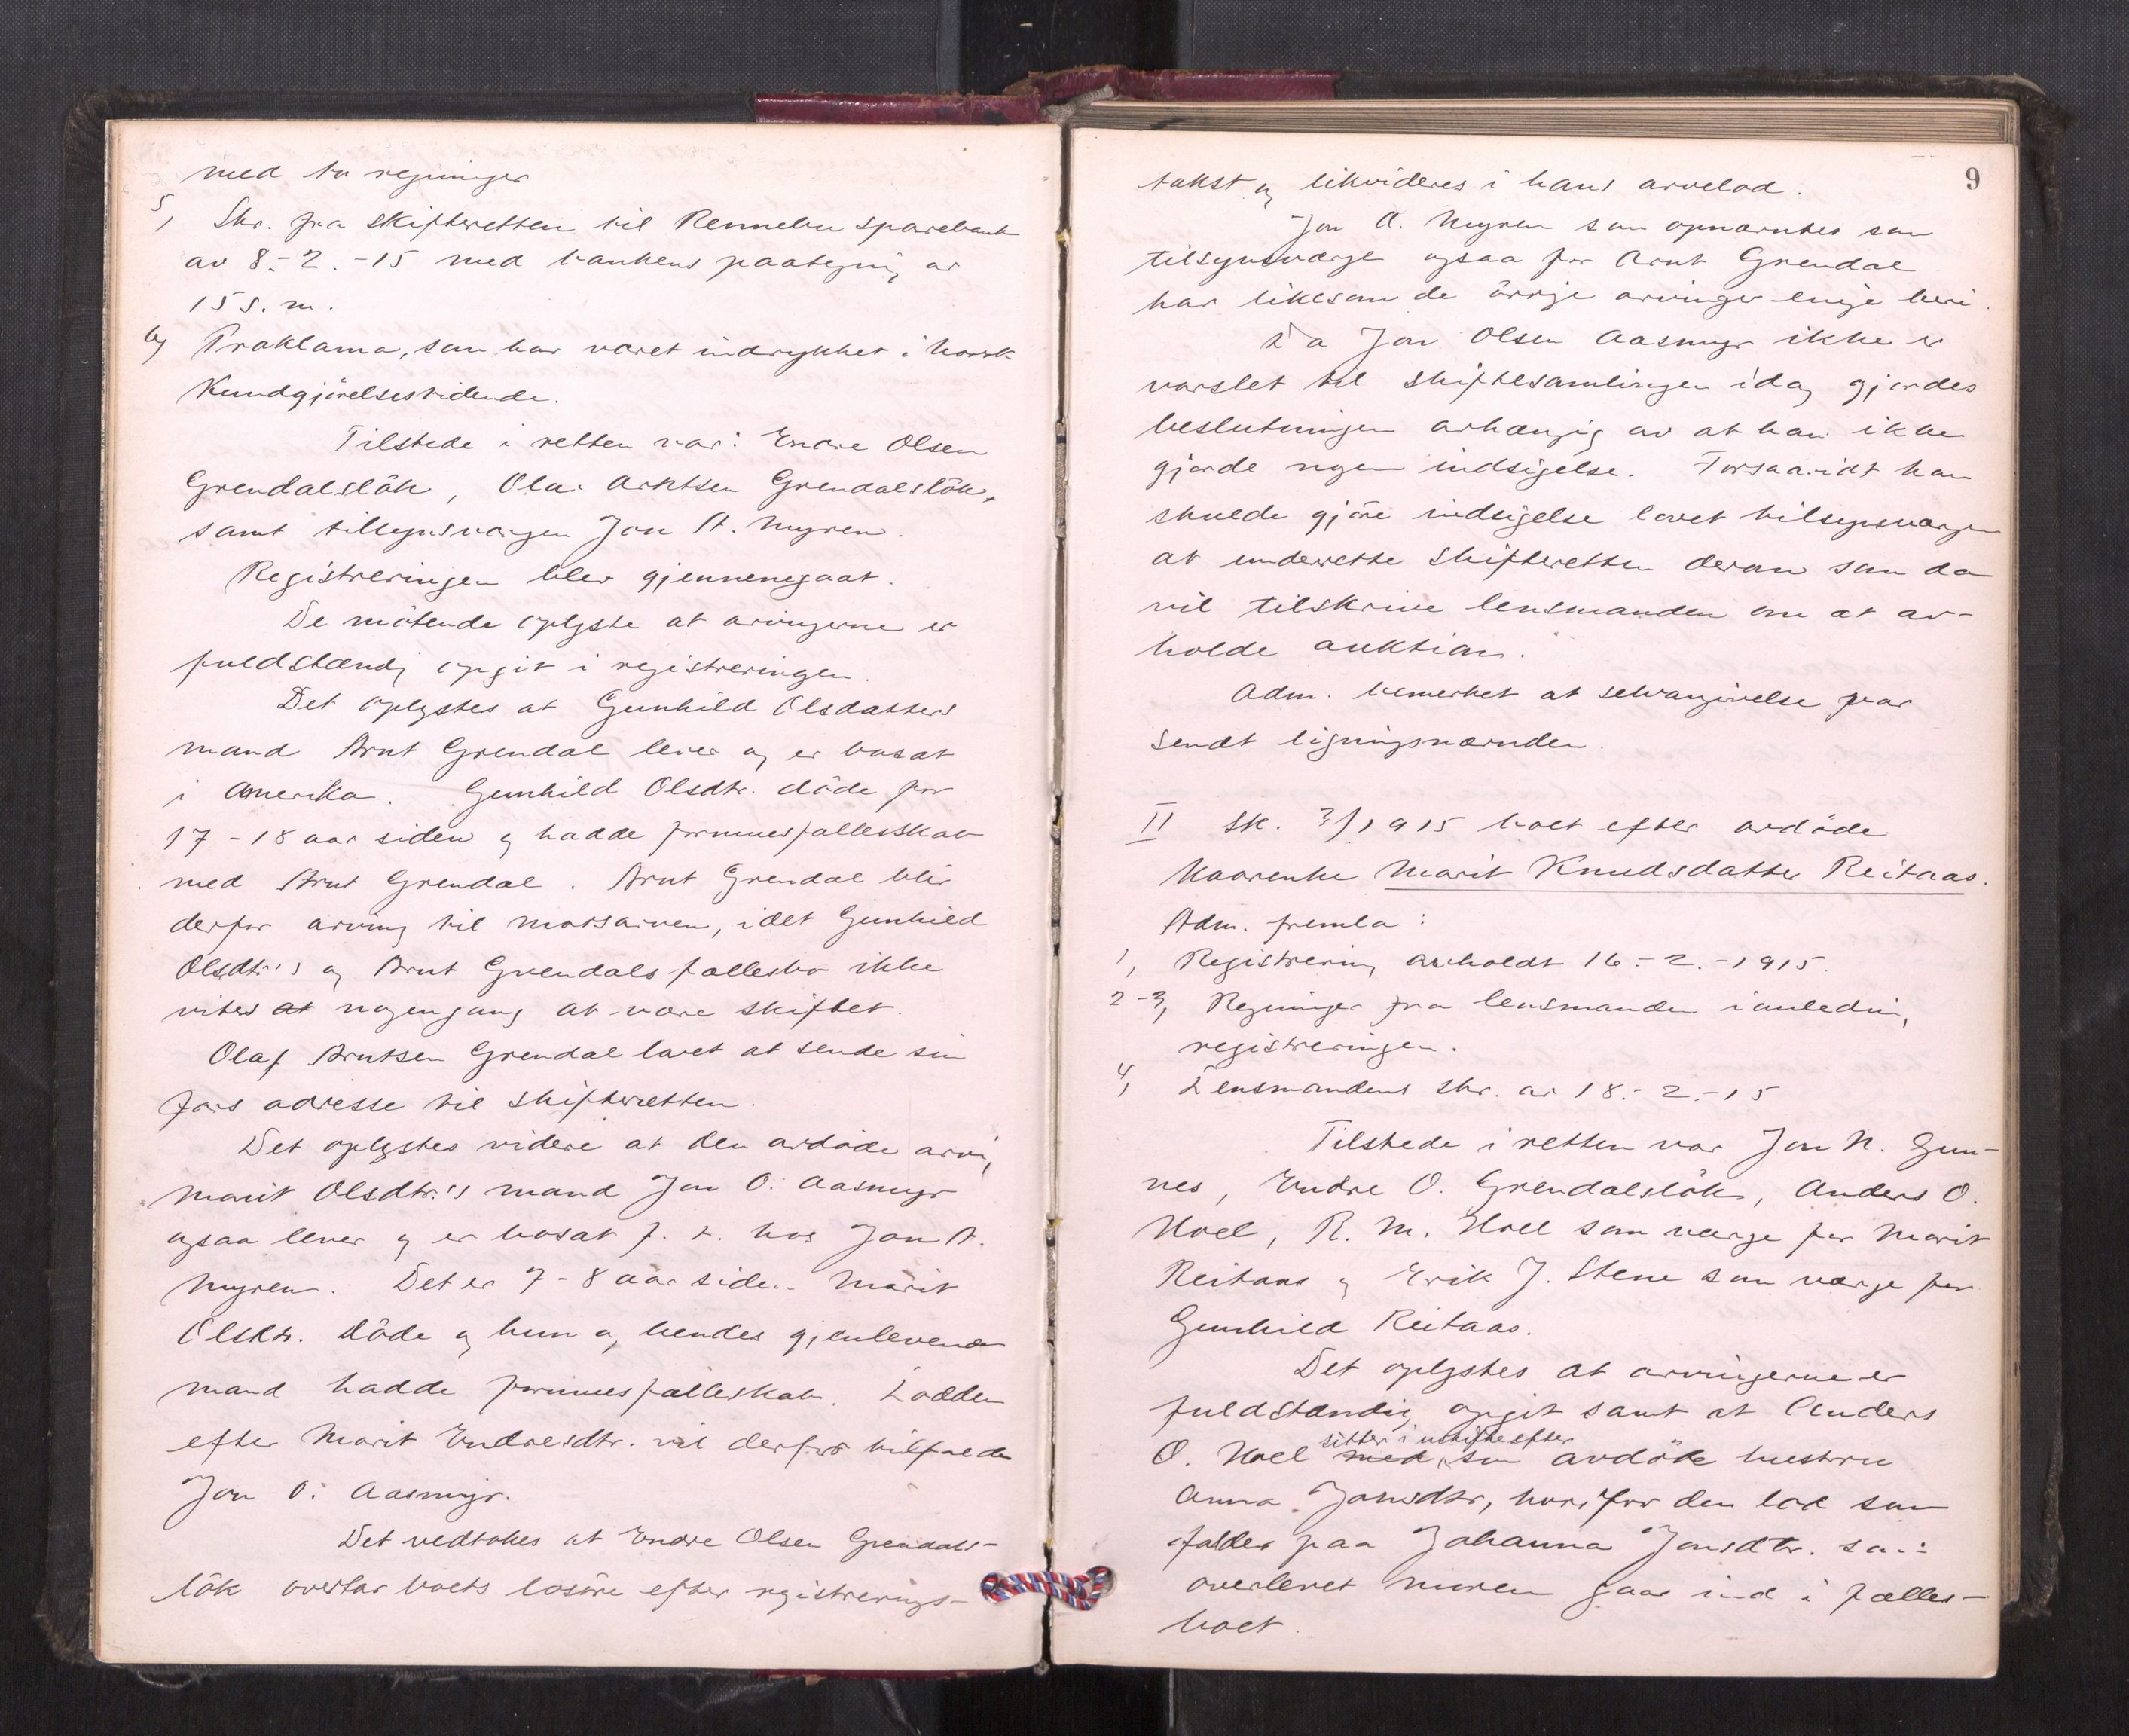 med to regninger
5, Skr. fra skifteretten til Rennebu sparebank
av 8.-2.-15 med bankens paategning av
15 s. m.
6, Proklama, som har været indrykket i Norsk
Kundgjörelsestidende.
Tilstede i retten var: Endre Olsen
Grendalslök, Ola Arntsen Grendalslök,
samt tilsynsvergen Jon A. Myren.
Registreringen blev gjennemgaat.
De mötende oplyste at arvingerne er
fuldstændig opgit i registreringen.
Det oplystes at Gunhild Olsdatters
mand Arnt Grendal lever og er bosat
i Amerika. Gunhild Olsdtr. döde for
17-18 aar siden og hadde formuesfællesskab
med Arnt Grendal. Arnt Grendal blir
derfor arving til morsarven, idet Gunhild
Olsdtr.'s og Arnt Grendals fællesbo ikke
vites at nogengang at være skiftet.
Olaf Arntsen Grendal lovet at sende sin
fars adresse til skifteretten.
Det oplystes videre at den avdöde arving
Marit Olsdtr.'s mand Jon O. Aasmyr
ogsaa lever og er bosat f. t. hos Jon A.
Myren. Det er 7-8 aar siden Marit
Olsdtr. döde og hun og hendes gjenlevende
mand hadde formuesfælleskab. Lodden
efter Marit Endresdtr. vil derfor tilfalde
Jon O. Aasmyr.
Det vedtokes at Endre Olsen Grendals-
lök overtar boets lösöre efter registrerings-
9
takst og likvideres i hans arvelod.
Jon A. Myren som opnævntes som
tilsynsværge ogsaa for Arnt Grendal
har likesom de övrige arvinger enige heri.
Da Jon Olsen Aasmyr ikke er
varslet til skiftesamlingen idag gjordes
beslutningen avhængig av at han ikke
gjorde nogen indsigelse. Forsaavidt han
skulde gjöre indsigelse lovet tilsynsværgen
at underrette skifteretten derom som da
vil tilskrive lensmanden om at av-
holde auktion.
Adm. bemerket at selvangivelse var
sendt ligningsnævnden.
II Sk. 3/1915 boet efter avdöde
Kaarenke Marit Knudsdatter Reitaas.
Adm. fremla:
1, Registrering avholdt 16.-2.-1915.
2-3, Regninger fra lensmanden i anledning
registreringen.
4, Lensmandens skr. av 18.-2.-15
Tilstede i retten var Jon N. Gun-
nes, Endre O. Grendalslök, Anders O.
Hoel, R. M. Hoel som værge for Marit
Reitaas og Erik J. Stene som værge for
Gunhild Reitaas.
Det oplystes at arvingerne er
fuldstændig opgit samt at Anders
sitter i uskifte efter
O. Hoel med sin avdöde hustru
Anna Jonsdtr., hvorfor den lod som
falder paa Johanna Jonsdtr. som
overlevet moren gaar ind i fælles-
boet.